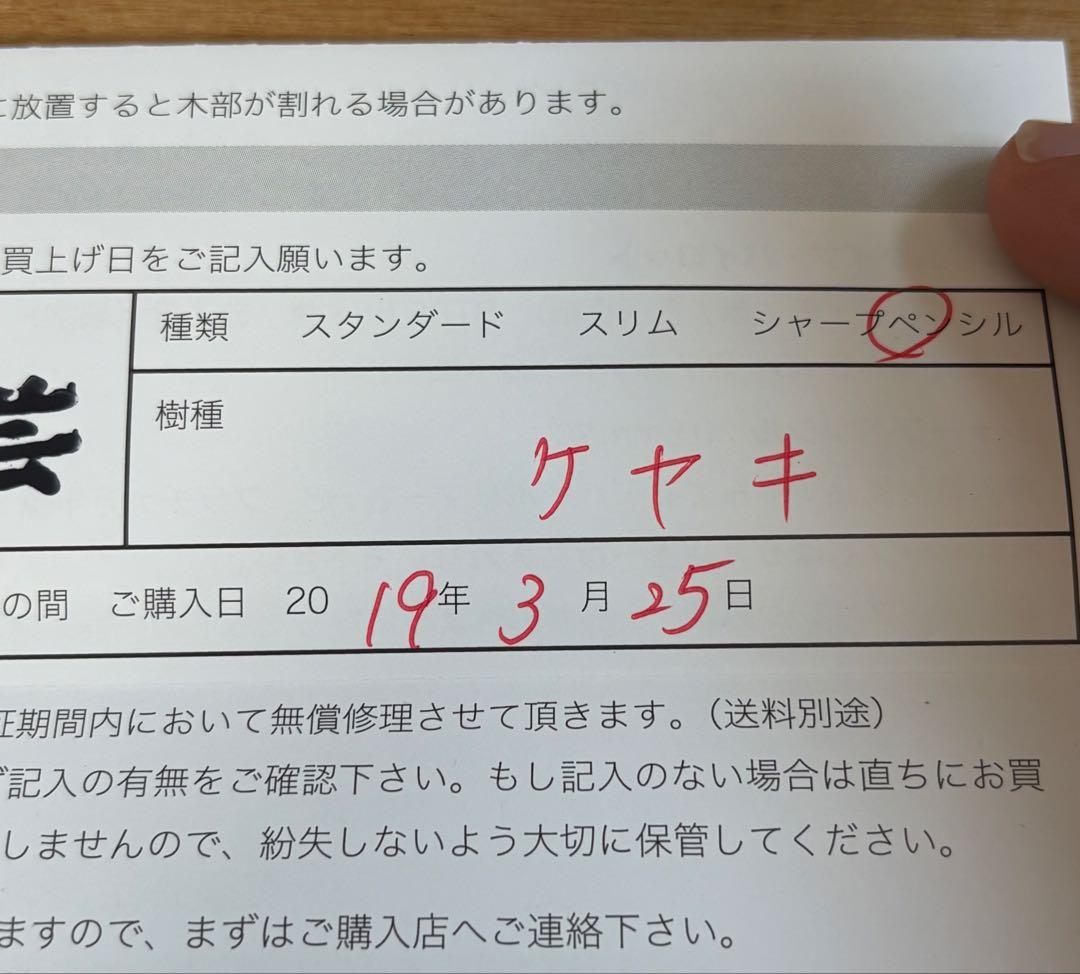 に放置すると木部が割れる場合があります。
買上げ日をご記入願います。
種類 スタンダード スリム シャープペンシル
芸
樹種
ケヤキ
の間 ご購入日 2019年3月25日
証期間内において無償修理させて頂きます。（送料別途）
ず記入の有無をご確認下さい。もし記入のない場合は直ちにお買
しませんので、紛失しないよう大切に保管してください。
ますので、まずはご購入店へご連絡下さい。